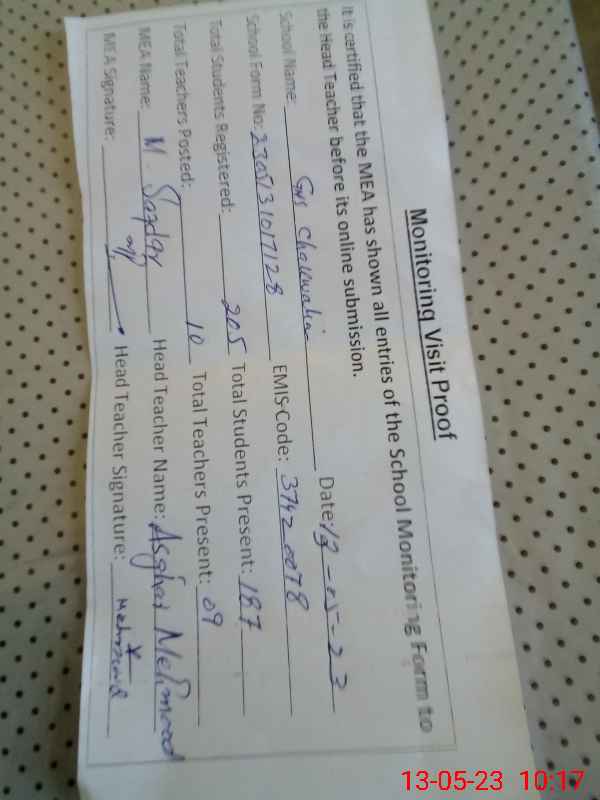 Monitoring Visit Proof
It is certified that the MEA has shown all entries of the School Monitoring Form to
the Head Teacher before its online submission.
School Name: GHS Date: 13-05-23
School Form No: 2305131017128 EMIS-Code: 37420078
Total Students Registered: 205 Total Students Present: 187
Total Teachers Posted: 10 Total Teachers Present: 09
MEA Name: M. Safdar Head Teacher Name: Asghar Mehmood
MEA Signature: Head Teacher Signature:
13-05-23 10:17